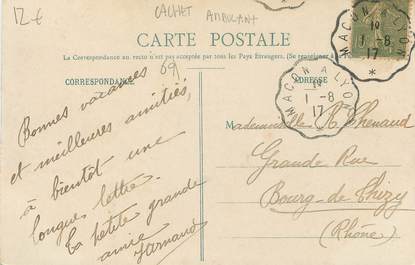 12 €
CACHET AMBULANT
CARTE POSTALE
La Correspondance au recto n'est pas acceptée par tous les Pays Étrangers. (Se renseigner à
CORRESPONDANCE
69
ADRESSE
MACON A LYON
1-8
17
*
MACON A LYON
1-8
17
*
Bonnes vacances
et meilleures amitiés,
à bientôt une
longues lettre.
ta petite grande
amie
Mademoiselle R. Chenaud
Grande Rue
Bourg-de-Thizy
(Rhône)